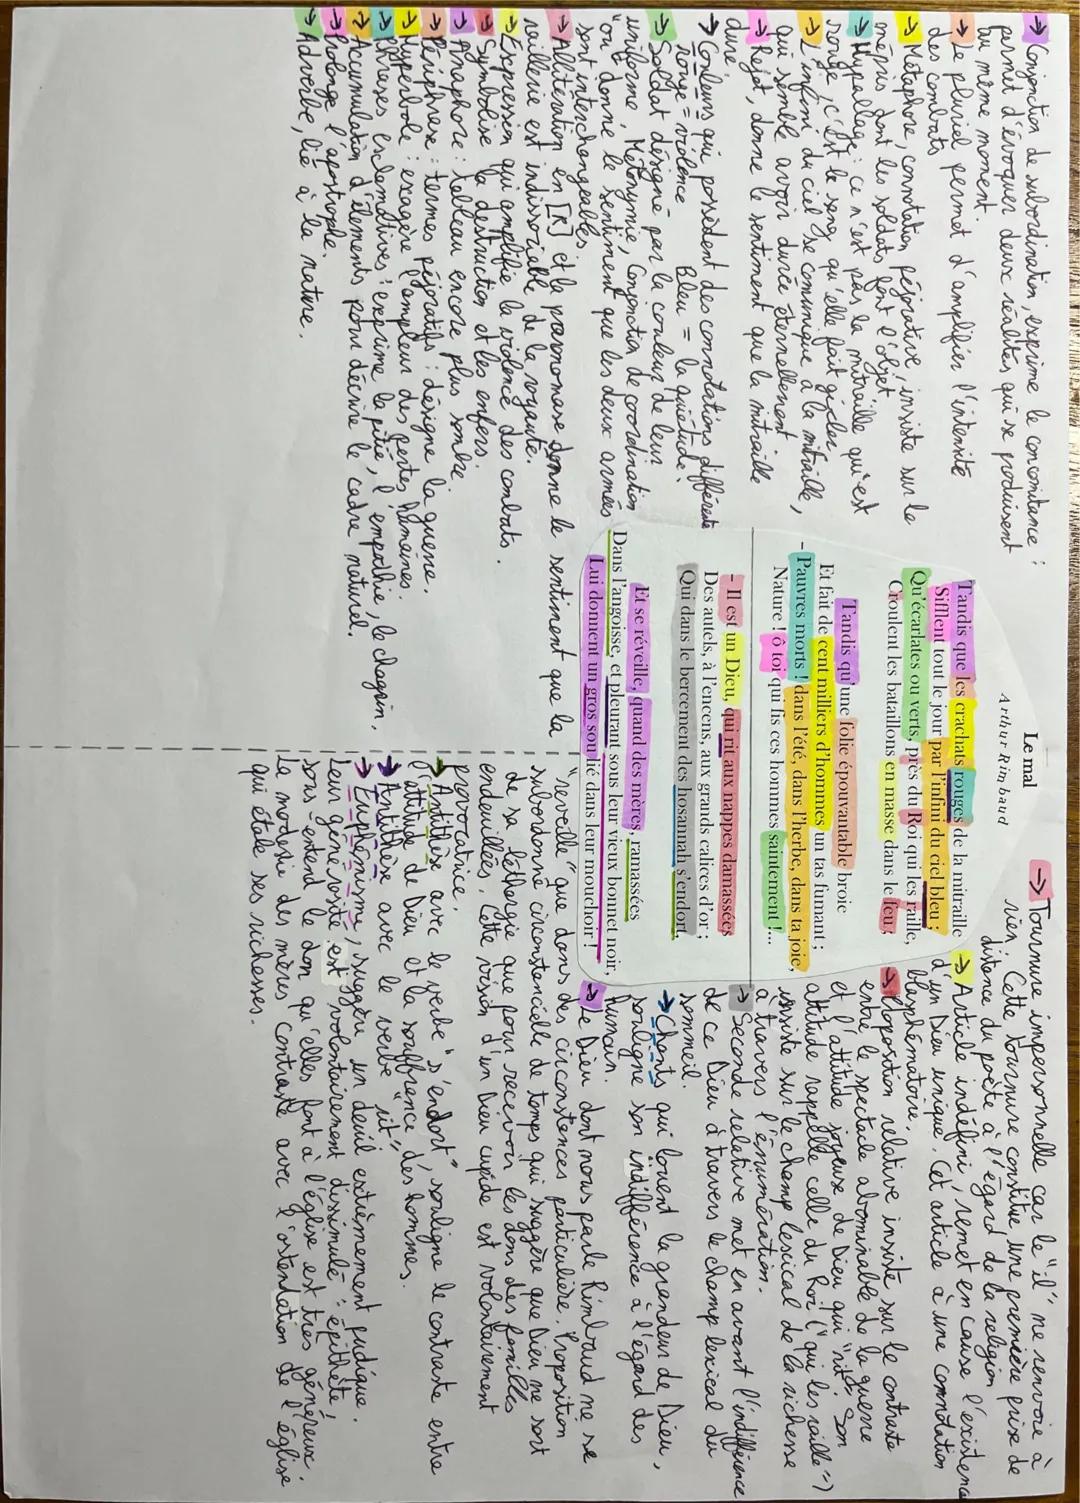 → Conjonction de subordination, exprime la concomitance :
permet d'évoquer deux réalités qui se produisent
au même moment.
→ Le pluriel permet d'amplifier l'intensité
des combats
→ Métaphore, connotation péjorative, insiste sur le
mépris dont les soldats font l'objet
→ Hypallage : ce n'est pas la mitraille qu'est
rouge, c'est le sang qu'elle fait gicler
→ L'infini du ciel se communique à la mitraille,
qui semble avoir durée éternellement
→ Rejet, donne le sentiment que la mitraille
dure.
→ Couleurs qui possèdent des connotations différente
rouge = violence Bleu = la quiétude.
→ Soldat désigné par la couleur de leur
uniforme, Métonymie, Conjonction de coordination
"ou" donne le sentiment que les deux armées
sont interchangeables.
→ Allitération en [R] et la paronomase donne le sentiment que la
raillerie est indissociable de la royauté.
→ Expression qui amplifie la violence des combats.
→ Symbolise la destruction et les enfers.
→ Anaphore : tableau encore plus sombre.
→ Périphrase : termes péjoratifs : désigne la guerre.
→ Hyperbole : exagère l'ampleur des pertes humaines.
→ Phrases exclamatives : exprime la pitié, l'empathie, le chagrin.
→ Accumulation d'élements pour décrire le cadre naturel.
→ Prolonge l'apostrophe.
→ Adverbe, lié à la nature.
Le mal
Arthur Rimbaud
Tandis que les crachats rouges de la mitraille
Sifflent tout le jour par l'infini du ciel bleu ;
Qu'écarlates ou verts, près du Roi qui les raille,
Croulent les bataillons en masse dans le feu ;
Tandis qu'une folie épouvantable broie
Et fait de cent milliers d'hommes un tas fumant ;
- Pauvres morts ! dans l'été, dans l'herbe, dans ta joie,
Nature ! ô toi qui fis ces hommes saintement !...
- Il est un Dieu, qui rit aux nappes damassées
Des autels, à l'encens, aux grands calices d'or ;
Qui dans le bercement des hosannah s'endort,
Et se réveille, quand des mères, ramassées
Dans l'angoisse, et pleurant sous leur vieux bonnet noir,
Lui donnent un gros sou lié dans leur mouchoir !
→ Tournure impersonnelle car le "il" ne renvoie à
rien. Cette tournure constitue une première prise de
distance du poète à l'égard de la religion
→ Article indéfini, remet en cause l'existence
d'un Dieu unique. Cet article à une connotation
blasphématoire.
→ Proposition relative insiste sur le contraste
entre le spectacle abominable de la guerre
et l'attitude joyeuse de Dieu qui "rit". Son
attitude rappelle celle du Roi ("qui les raille")
insiste sur le champ lexical de la richesse
à travers l'énumération.
→ Seconde relative met en avant l'indifférence
de ce Dieu à travers le champ lexical du
sommeil.
→ Chants qui louent la grandeur de Dieu,
souligne son indifférence à l'égard des
humain.
→ Le Dieu dont nous parle Rimbaud ne se
"réveille" que dans des circonstances particulière. Proposition
subordonné circonstancielle de temps qui suggère que Dieu ne sort
de sa léthargie que pour recevoir les dons des familles
endeuillées. Cette vision d'un Dieu cupide est volontairement
provocatrice.
→ Antithèse avec le verbe "s'endort", souligne le contraste entre
l'attitude de Dieu et la souffrance des hommes.
→ Antithèse avec le verbe "rit",
→ Euphémisme, suggère un deuil extrèmement pudique.
Leur générosité est volontairement dissimulé : épithète
sous entend le don qu'elles font à l'église est très généreux.
La modestie des mères contraste avec l'ostendation de l'église
qui étale ses richesses.